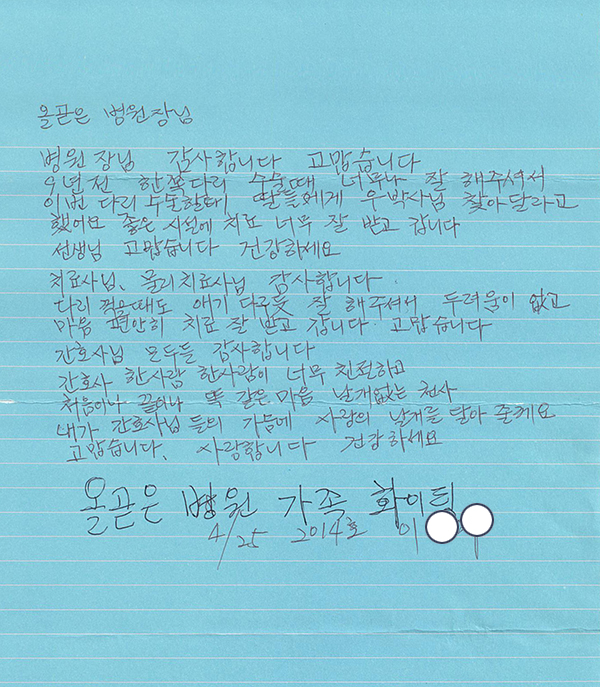 올곧은 병원장님
병원장님 감사합니다 고맙습니다
9년전 한쪽다리 수술때 너무나 잘 해주셔서
이번 다리 수술할때 딸들에게 우박사님 찾아달라고
했어요 좋은 시설에 치료 너무 잘 받고 갑니다
선생님 고맙습니다 건강하세요
치료사님, 물리치료사님 감사합니다
다리 꺽을때도 애기 다루듯 잘 해주셔서 두려움이 없고
마음 편안히 치료 잘 받고 갑니다 고맙습니다
간호사님 모두들 감사합니다
간호사 한사람 한사람이 너무 친절하고
처음이나 끝이나 똑 같은 마음 날개없는 천사
내가 간호사님 들의 가슴에 사랑의 날개를 달아 줄께요
고맙습니다. 사랑합니다 건강하세요
올곧은 병원 가족 화이팅
4/25 2014호 이